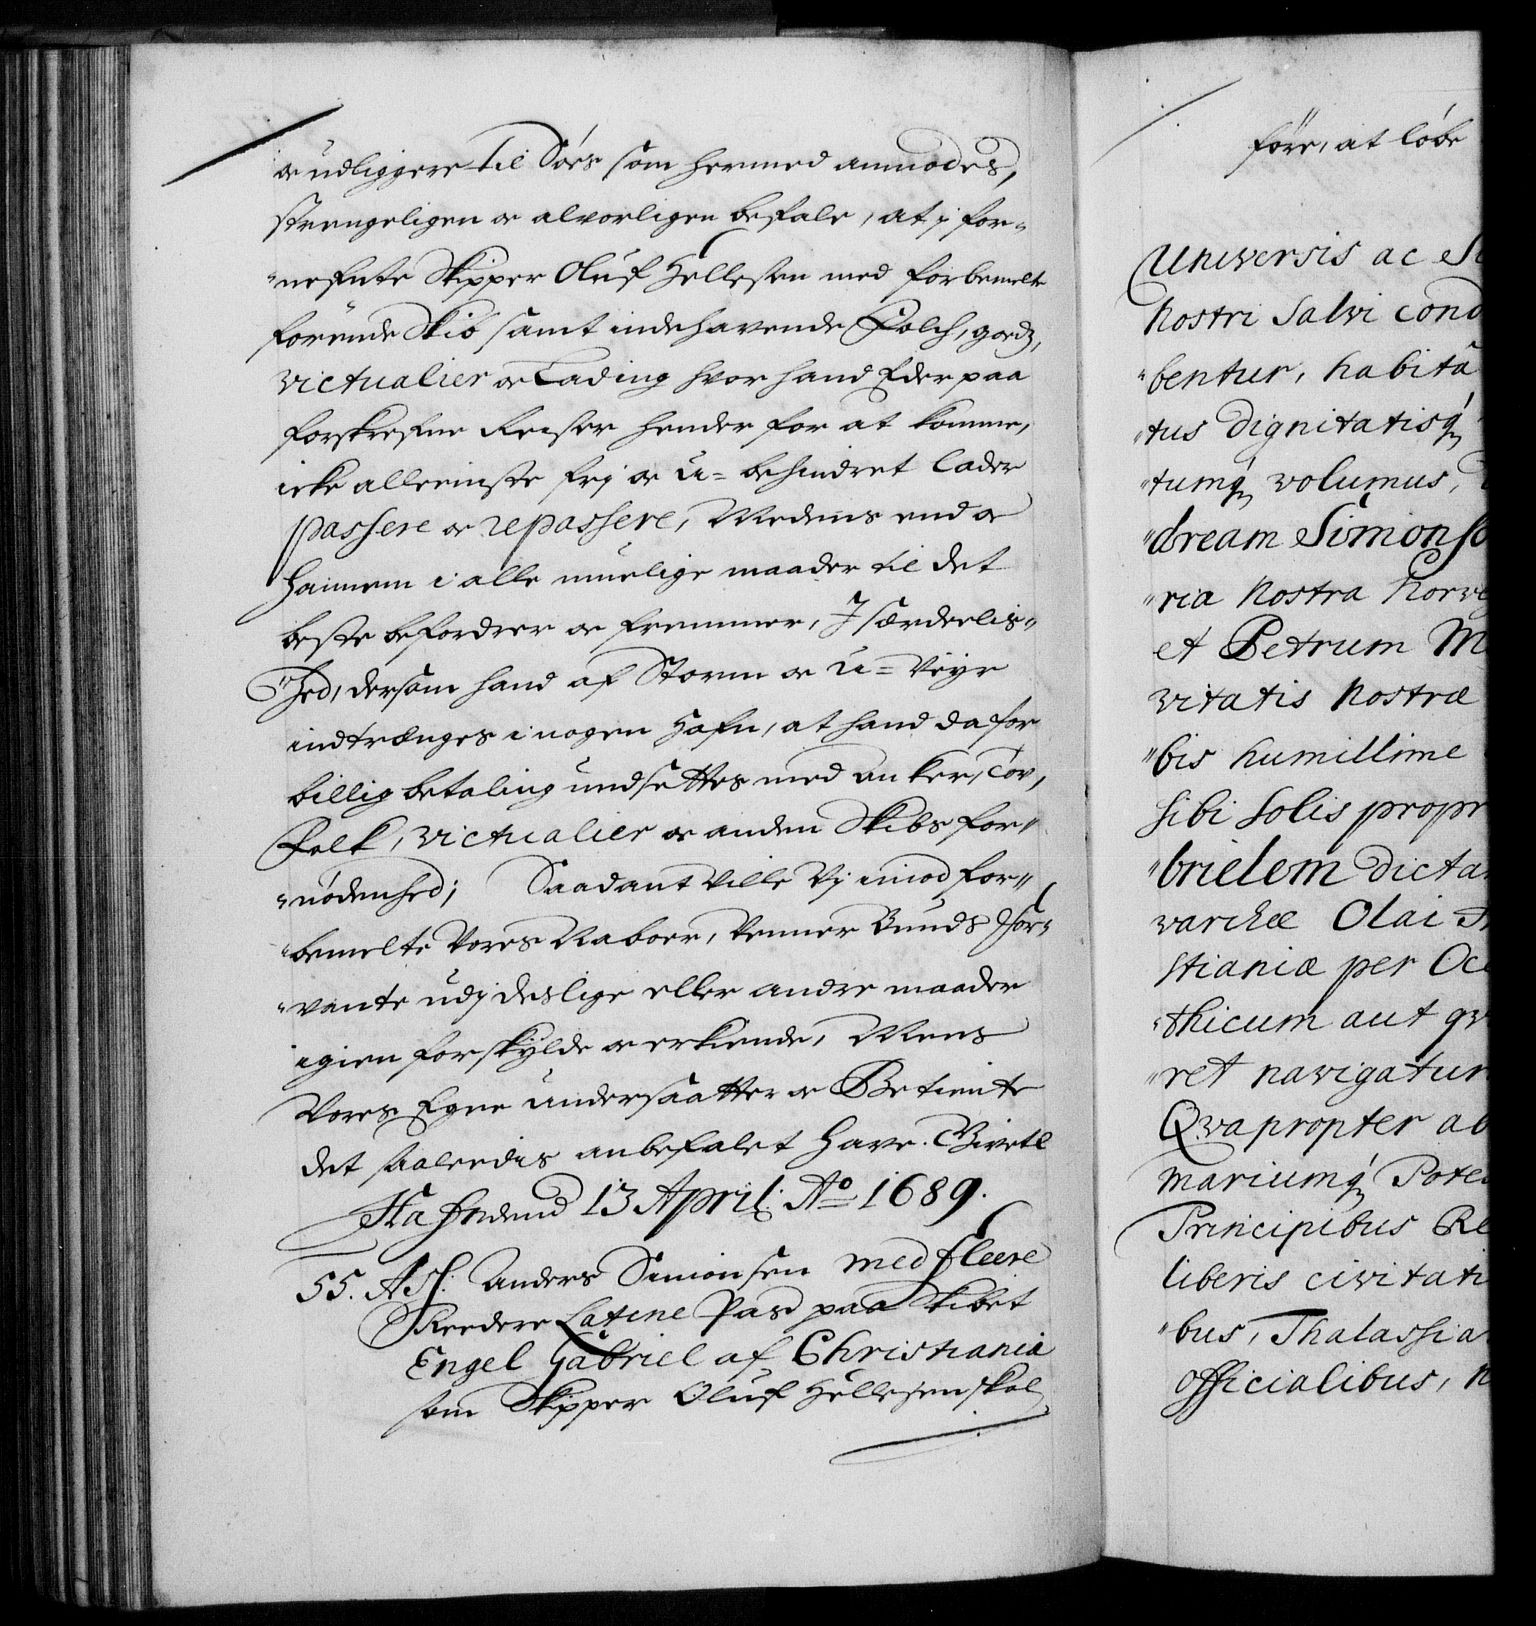 oc udliggere til Søes som hermed anmodes,
strengeligen oc alvorligen befale, at j for-
-nefnte Skipper Oluf Hellesen med forbemelte
førende Skib samt indehavende Folch, godz,
victualier oc Lading hvor hand Eder paa
forskrefne Reiser hender for at komme,
icke alleeniste frj oc u-behindret lader
passere oc repassere, Medens end oc
hannem i alle muelige maader til det
beste befordrer oc fremmer, I særdeelis-
-hed, dersom hand af Storm oc u-Veyr
indtrænges i nogen Hafn, at hand da for
billig betaling undsettes med Anker, Tov,
Folk, victualier oc anden Skibs for-
-nødenhed; Saadant Ville Vj imod for-
-bemelte Vores Naboer, Venner Bunds For-
-vante udj deslige eller andre maader
igien forskylde oc erkiende, Mens
Vores Egne undersaatter oc Betiente
det saaledis anbefalet have. Givet
Hafn 13 April: Ao 1689.
55. Anders Simonsen med fleere
Reedere Latine Pas paa Skibet
Engel Gabriel af Christiania
som Skipper Oluf Hellesen skal
føre, at løbe
Universis ac
Nostri Salvi cond
-bentur, habitâ
-tus dignitatisq
-tumq volumus,
dream Simonso
-ria Nostra Norve
et Petrum M
vitatis Nostræ
-bis humillime
sibi solis propr
-brielem dicta
varchæ Olai
stianiæ per Oce
-thicum aut qv
-ret navigatur
Qvapropter ab
mariumq Pote
Principibus Re
liberis civitati
-bus, Thalassia
officialibus, N